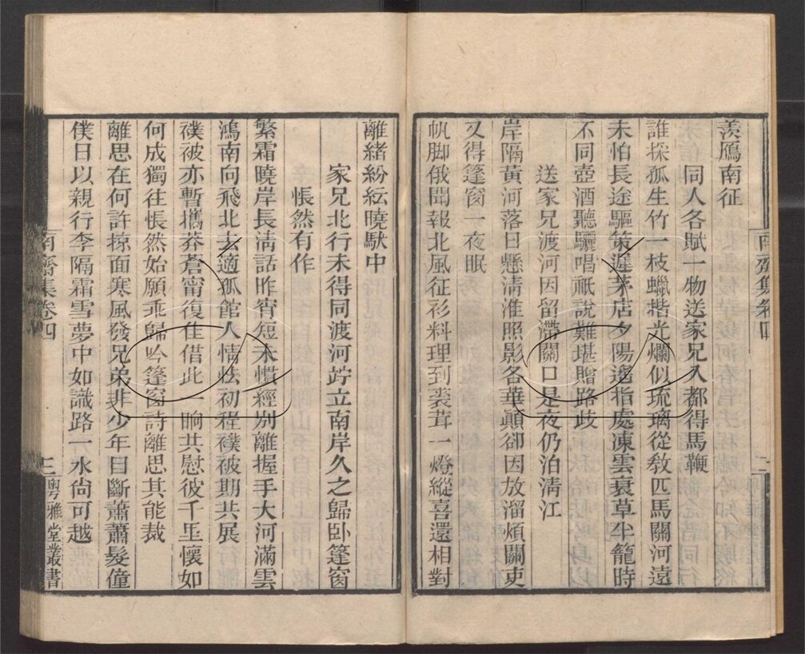 羨鴈南征
同人各賦一物送家兄入都得馬鞭
誰採孤生竹一枝蠟揩光爛似琉璃從敎匹馬關河遠
未怕長途驅策遲茅店夕陽遙指處凍雲衰草半籠時
不同壺酒聽驪唱祇說難堪贈路歧
送家兄渡河因留滯關口是夜仍泊淸江
岸隔黃河落日懸淸淮照影各華顚卻因放溜煩關吏
又得篷窗一夜眠
帆脚俄聞報北風征衫料理到裘茸一燈縱喜還相對
南齋集卷四
二
離緒紛紜曉馱中
家兄北行未得同渡河竚立南岸久之歸臥篷窗
悵然有作
繁霜曉岸長淸話昨宵短未慣經別離握手大河滿雲
鴻南向飛北去適孤館人情怯初程襆被期共展
襆被亦暫攜莽蒼甯復佳借此一晌共慰彼千里懷如
何成獨往悵然始願乖歸吟篷窗詩離思其能裁
離思在何許掠面寒風發兄弟非少年日斷蕭蕭髮僮
僕日以親行李隔霜雪夢中如識路一水尙可越
南齋集卷四
三
粤雅堂叢書